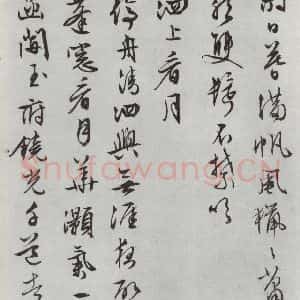 日暮滿帆風獵獵
雙鬢不禁吹
泗上看月
停舟清泗興無涯
蓬窗看月華灝氣一
開玉府饒光千道
Shufawang.CN